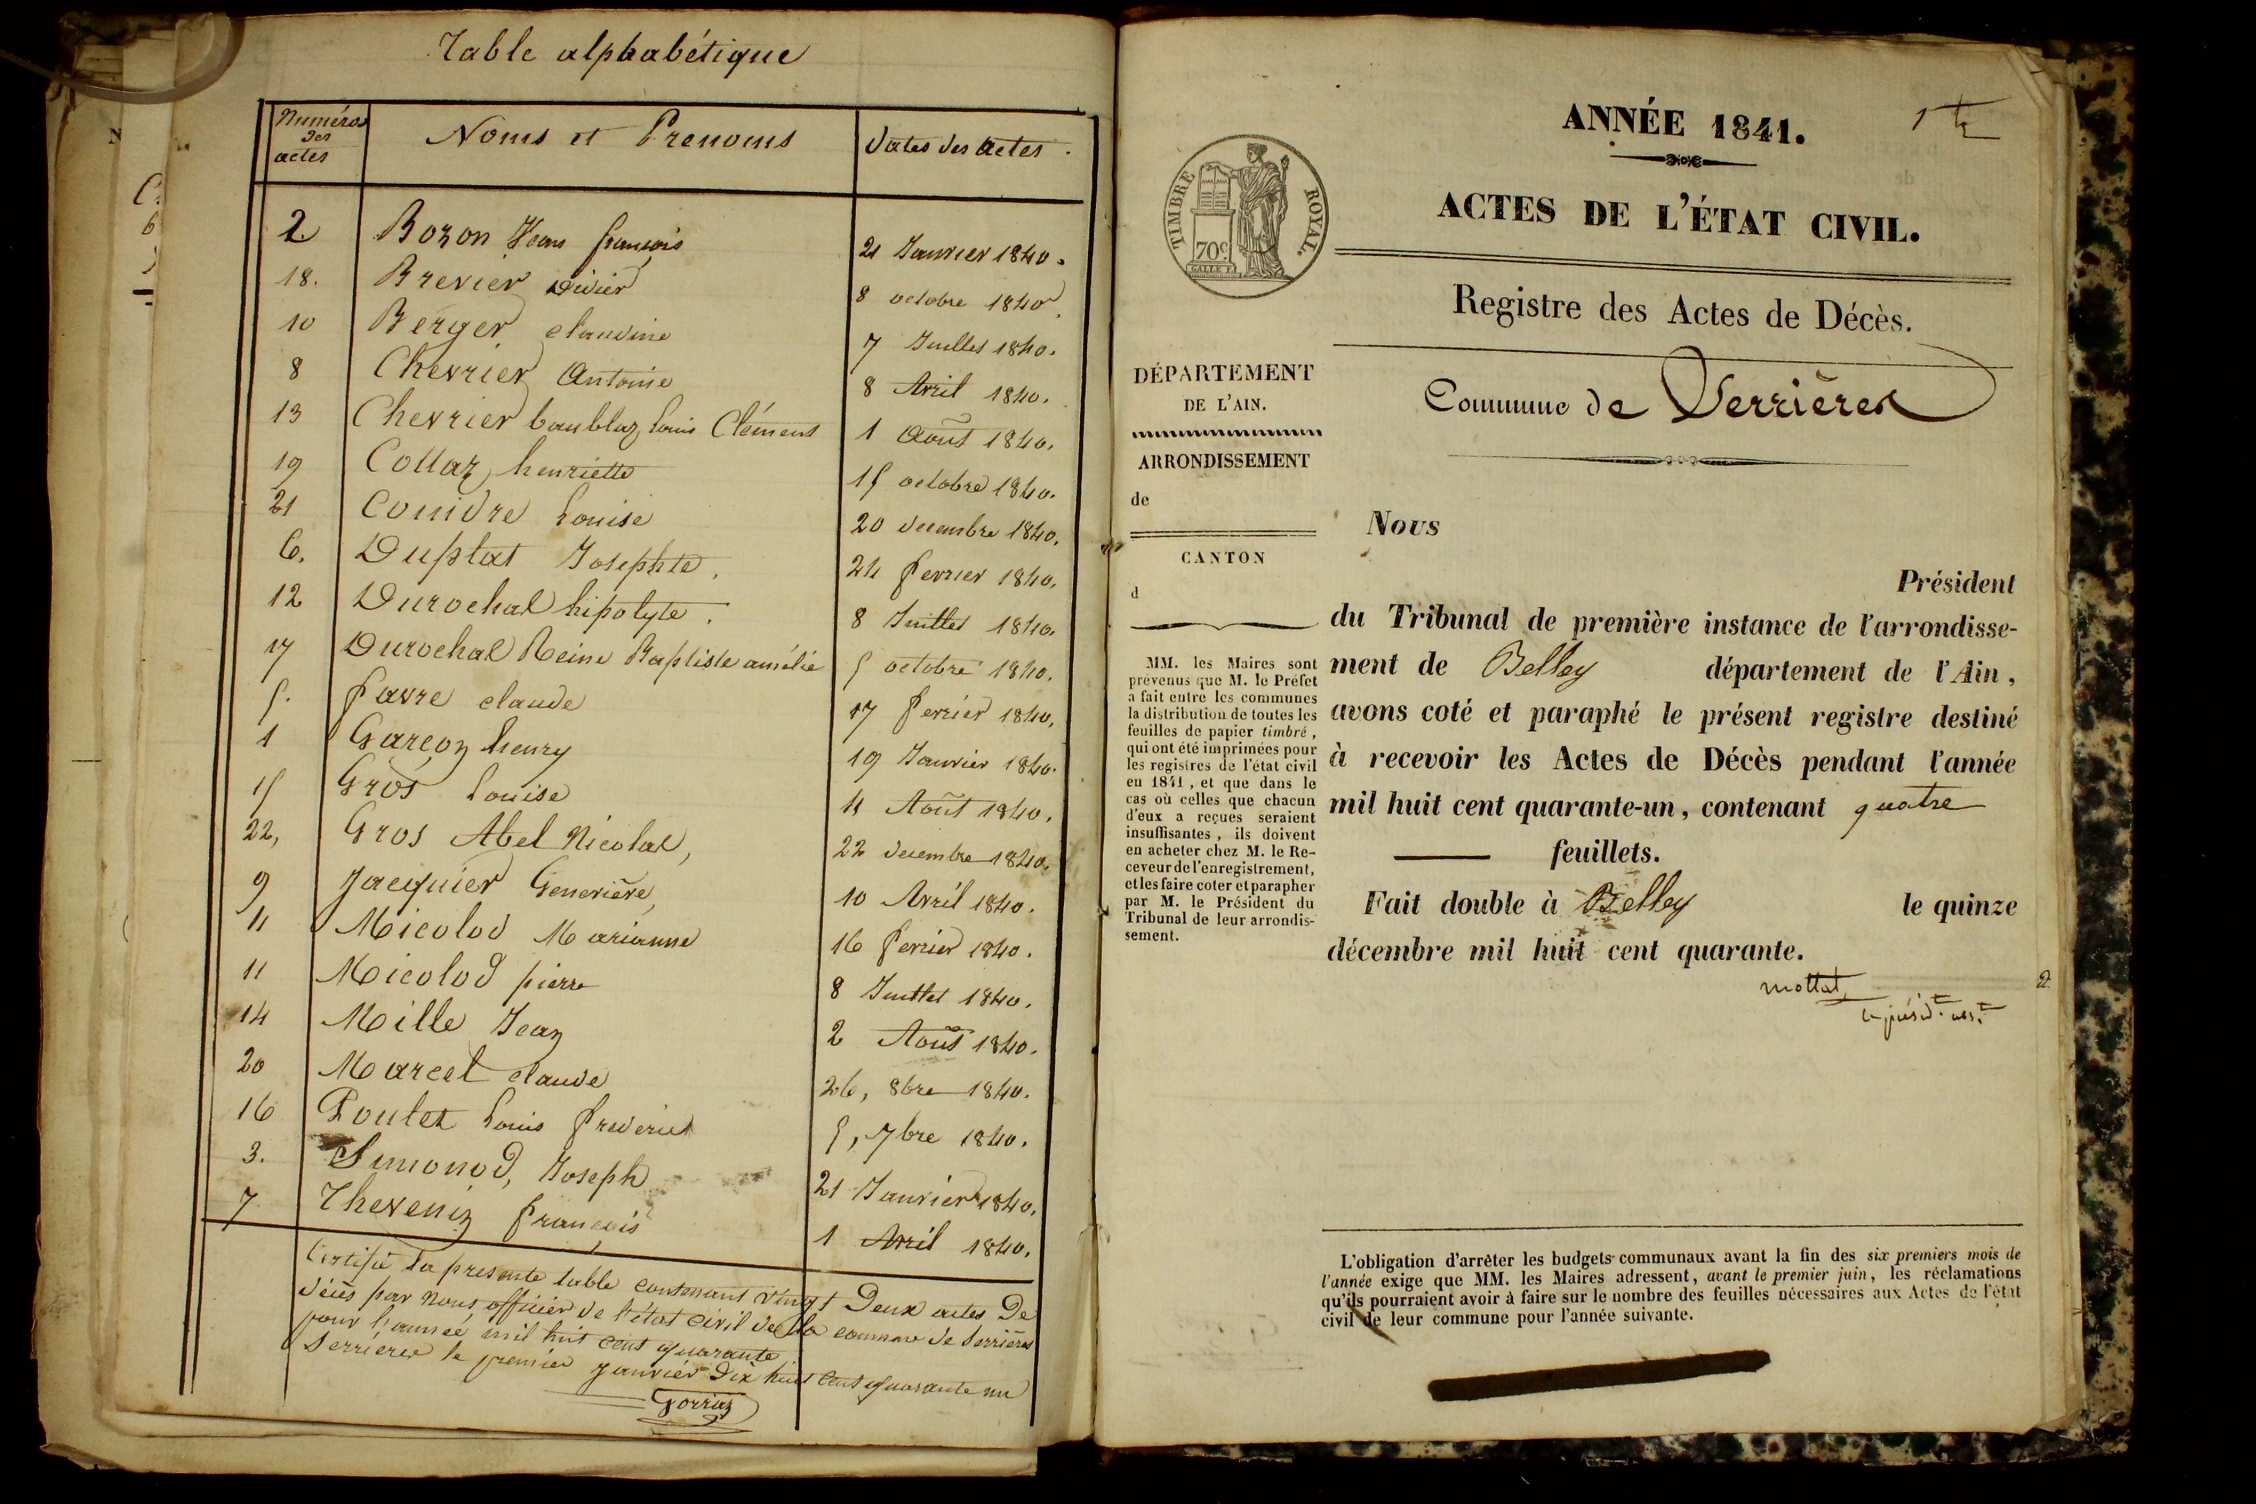 Table alphabétique
Numéros des actes Noms et Prenoms Dates des actes.
2 Bozon Jean françois 21 Janvier 1840.
18. Brevier Didier 8 octobre 1840.
10 Berger claudine 7 Juillet 1840.
8 Chevrier Antoine 8 Avril 1840.
13 Chevrier Louis Clément 1 Août 1840.
19 Collaz henriette 15 octobre 1840.
21 Louise 20 decembre 1840.
6. Duplat Josephte. 24 fevrier 1840.
12 Durochal hipolyte. 8 Juillet 1840.
17 Durochal Reine Baptiste amélie 5 octobre 1840.
5. favre claude 17 fevrier 1840.
1 Garçon henry 19 Janvier 1840.
15 Gros Louise 4 Août 1840.
22, Gros Abel Nicolas, 22 decembre 1840.
9 Jacquier Geneviève, 10 Avril 1840.
4 Micolod Marianne 16 fevrier 1840.
11 Micolod pierre 8 Juillet 1840.
14 Mille Jean 2 Août 1840.
20 Marcel claude 26, 8bre 1840.
16 Poulet Louis frederic 5, 7bre 1840.
3. Simonod, Joseph 21 Janvier 1840.
7 Thevenin françois 1 Avril 1840.
Certifié la presente table contenant vingt Deux actes De
décès par nous officier de l'état civil de la commune de Serrières
pour l'année mil huit cent quarante
Serrières le premier Janvier Dix huit cent quarante un
Gorraz
1er
ANNÉE 1841.
ACTES DE L'ÉTAT CIVIL.
TIMBRE ROYAL.
70c
Registre des Actes de Décès.
Commune de Serrières
DÉPARTEMENT
DE L'AIN.
ARRONDISSEMENT
de
CANTON
d
MM. les Maires sont
prévenus que M. le Préfet
a fait entre les communes
la distribution de toutes les
feuilles de papier timbré,
qui ont été imprimées pour
les registres de l'état civil
en 1841, et que dans le
cas où celles que chacun
d'eux a reçues seraient
insuffisantes, ils doivent
en acheter chez M. le Re-
ceveur de l'enregistrement,
et les faire coter et parapher
par M. le Président du
Tribunal de leur arrondis-
sement.
Nous
Président
du Tribunal de première instance de l'arrondisse-
ment de Belley département de l'Ain,
avons coté et paraphé le présent registre destiné
à recevoir les Actes de Décès pendant l'année
mil huit cent quarante-un, contenant quatre
feuillets.
Fait double à Belley le quinze
décembre mil huit cent quarante.
mollat
2
L'obligation d'arrêter les budgets communaux avant la fin des six premiers mois de
l'année exige que MM. les Maires adressent, avant le premier juin, les réclamations
qu'ils pourraient avoir à faire sur le nombre des feuilles nécessaires aux Actes de l'état
civil de leur commune pour l'année suivante.